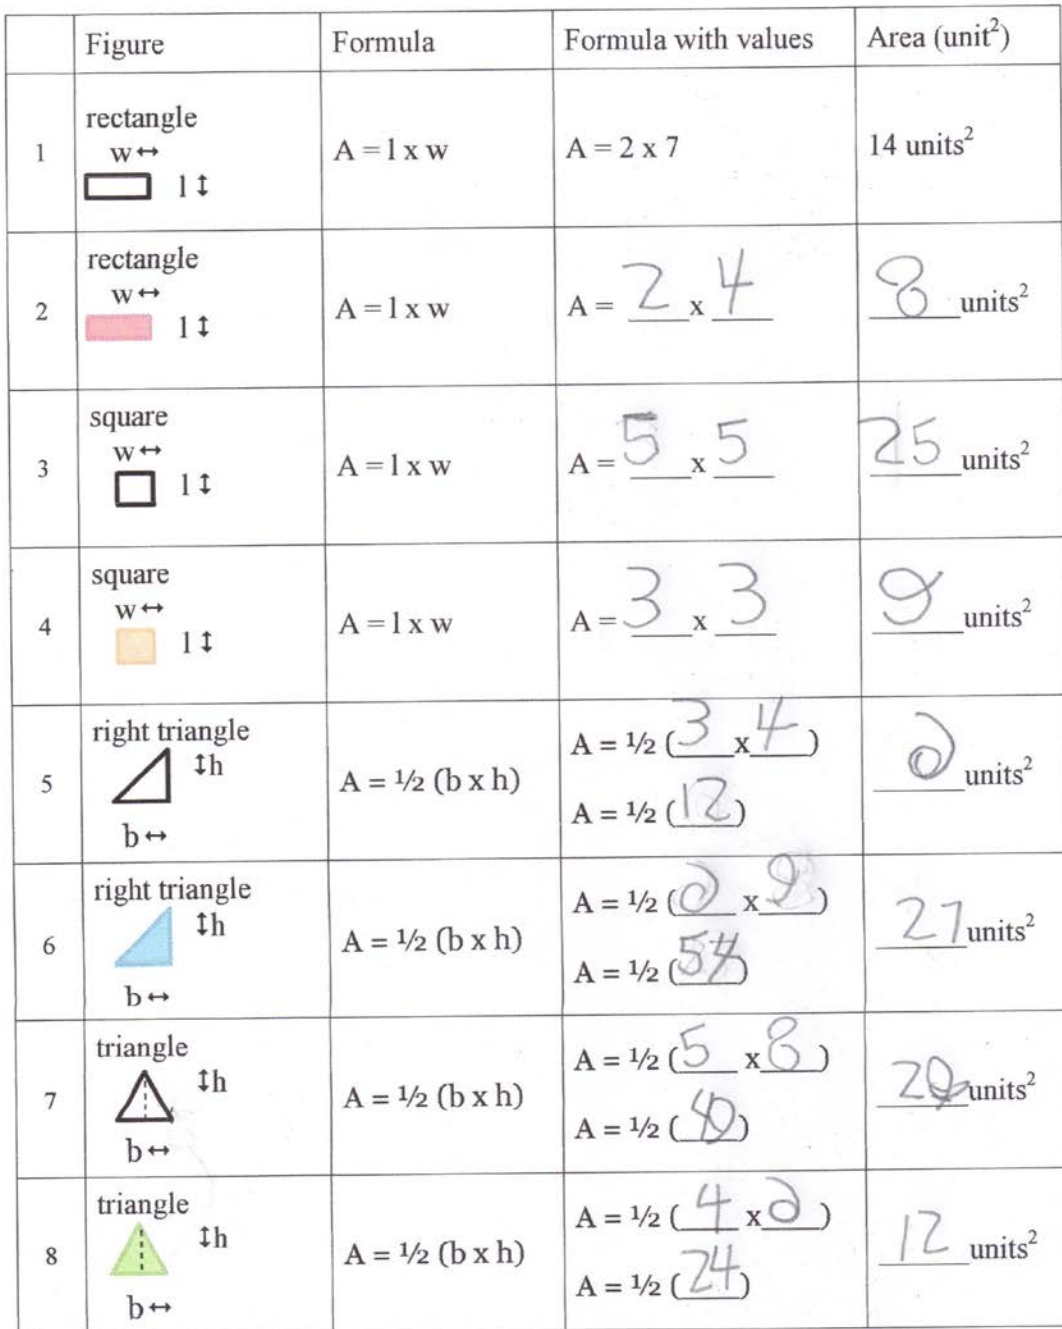 Figure
Formula
Formula with values
Area (unit²)
1
rectangle
w ↔
l ↕
A = l x w
A = 2 x 7
14 units²
2
rectangle
w ↔
l ↕
A = l x w
A = 2 x 4
8 units²
3
square
w ↔
l ↕
A = l x w
A = 5 x 5
25 units²
4
square
w ↔
l ↕
A = l x w
A = 3 x 3
9 units²
5
right triangle
↕h
b ↔
A = ½ (b x h)
A = ½ (3 x 4)
A = ½ (12)
6 units²
6
right triangle
↕h
b ↔
A = ½ (b x h)
A = ½ (6 x 9)
A = ½ (54)
27 units²
7
triangle
↕h
b ↔
A = ½ (b x h)
A = ½ (5 x 8)
A = ½ (40)
20 units²
8
triangle
↕h
b ↔
A = ½ (b x h)
A = ½ (4 x 6)
A = ½ (24)
12 units²